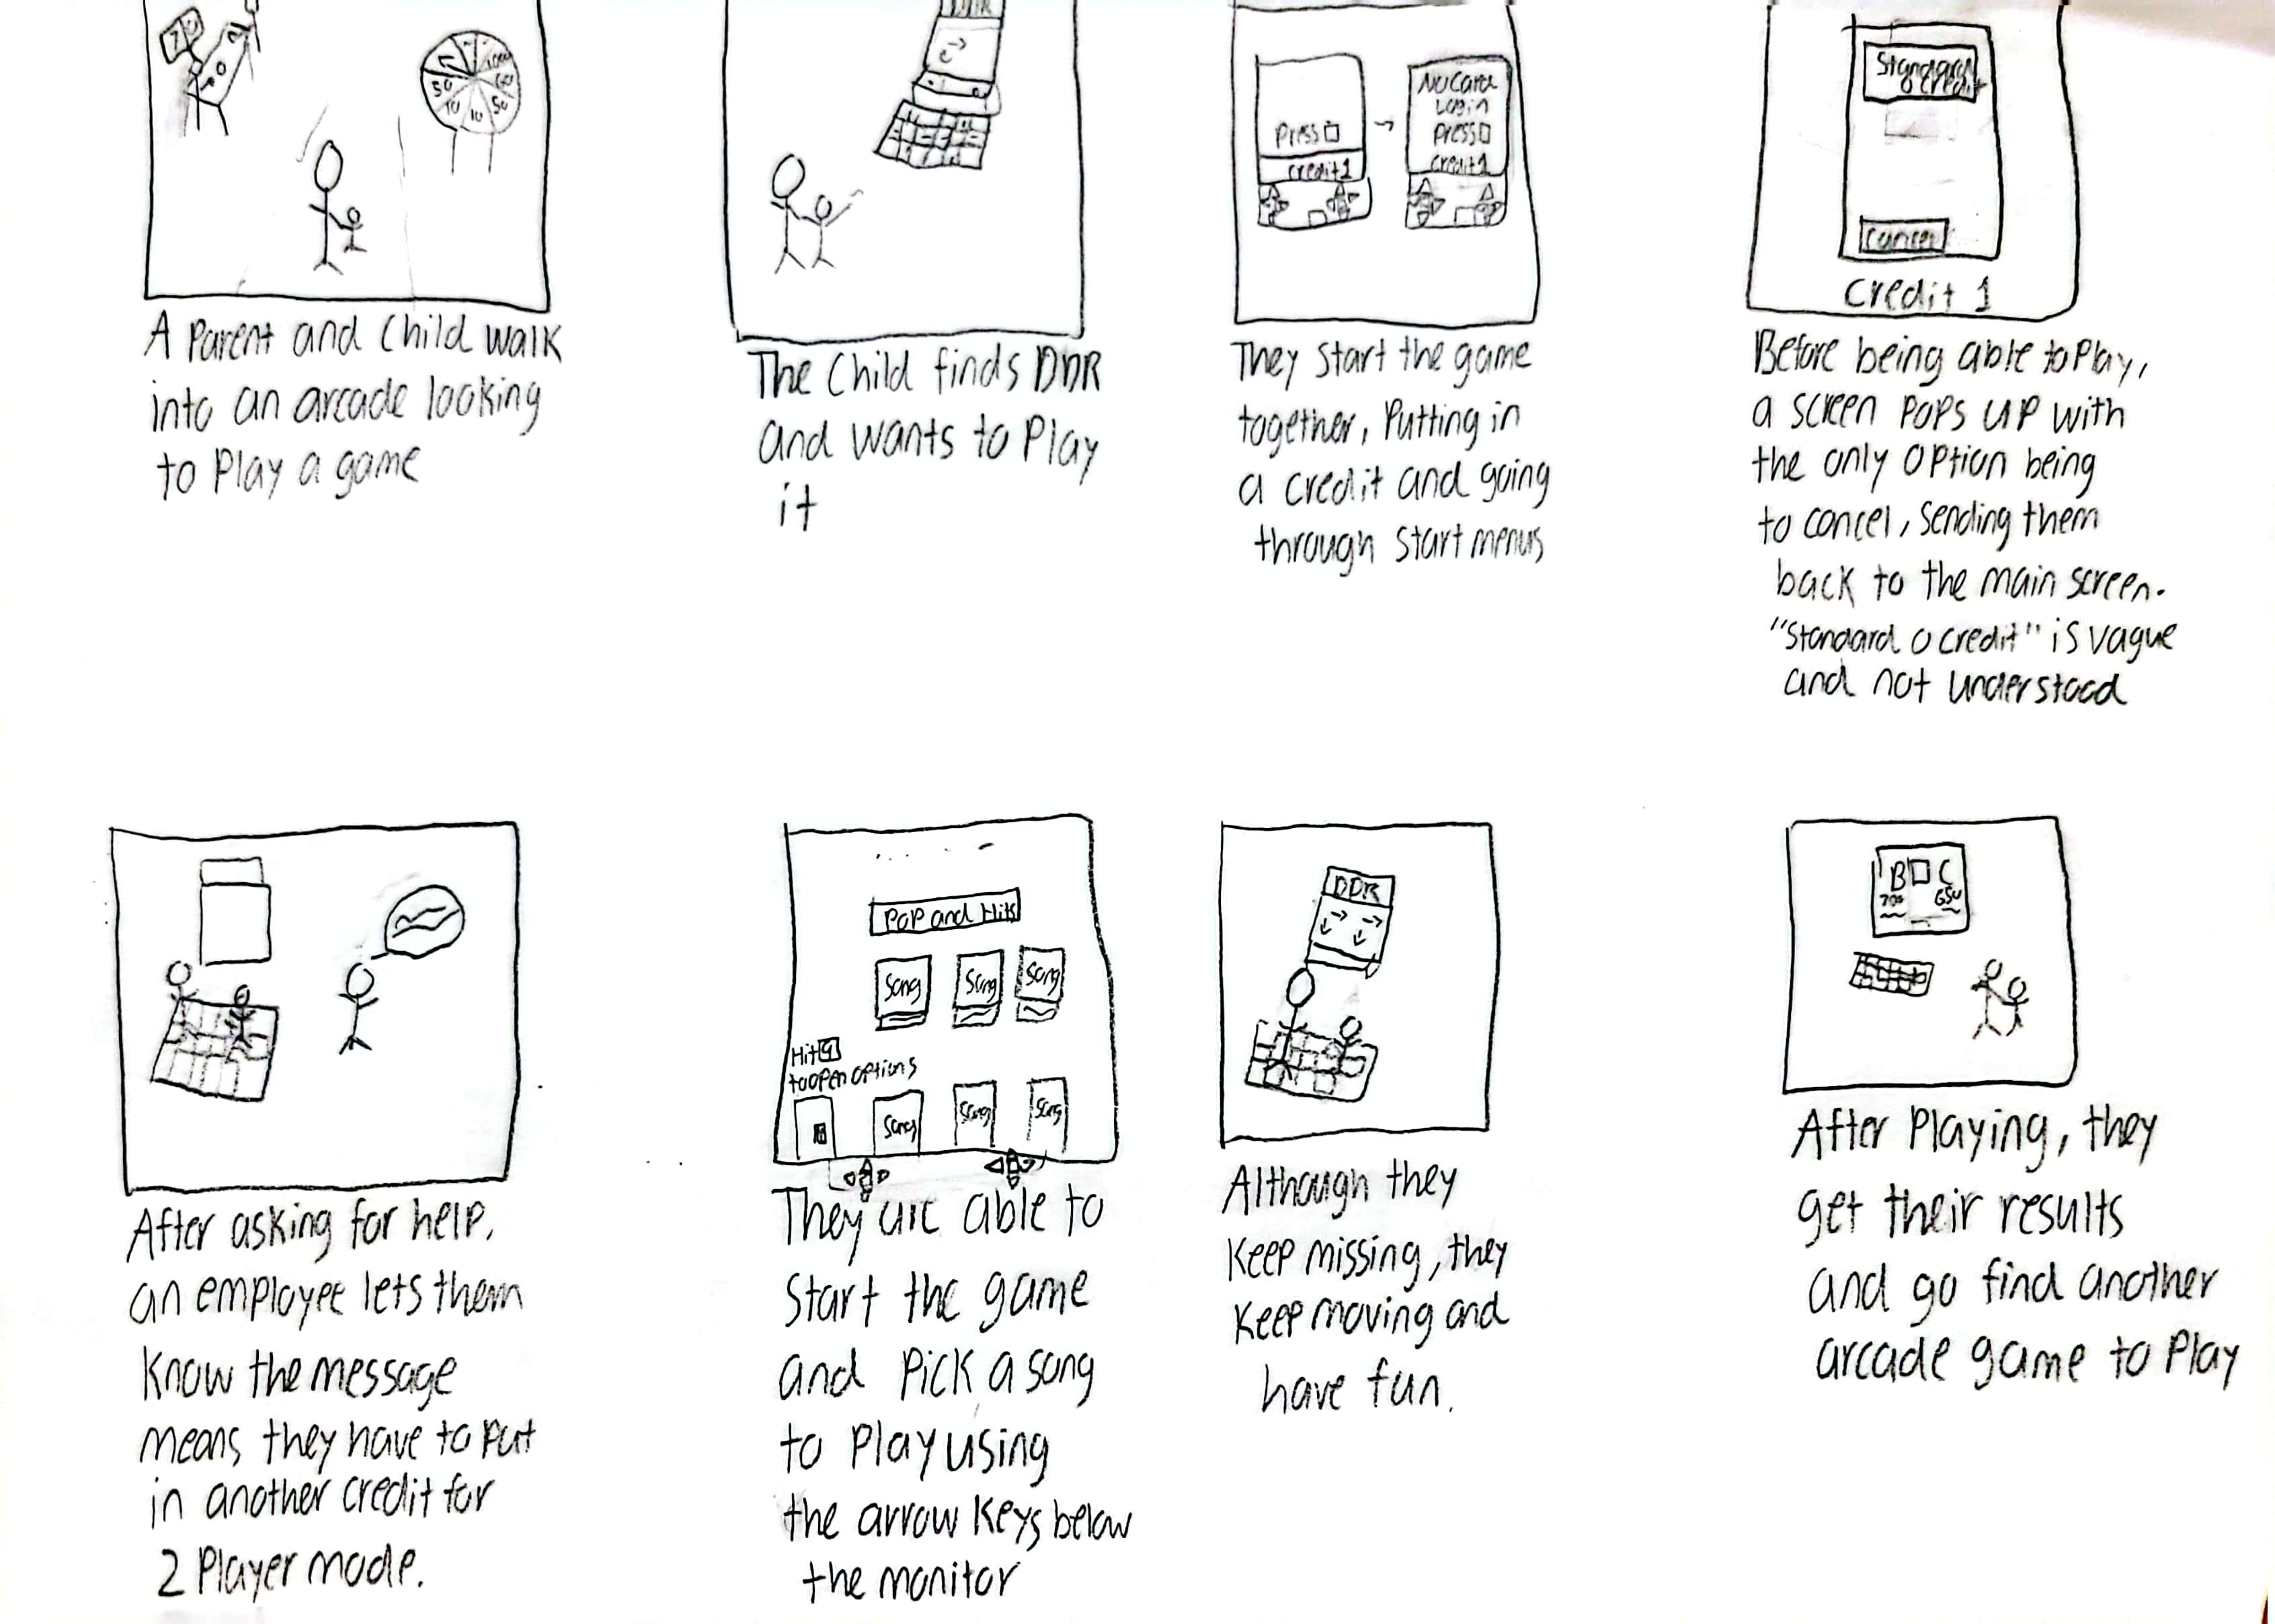 7
1000
60
50
50
10
10
A Parent and Child walk
into an arcade looking
to Play a game
DDR
The Child finds DDR
and wants to Play
it
Press
credit 1
No Card
Login
Press
credit 1
They Start the game
together, Putting in
a credit and going
through Start menus
Standard
0 Credit
Cancel
Credit 1
Before being able to Play,
a screen Pops up with
the only option being
to cancel, sending them
back to the main screen.
"Standard 0 credit" is vague
and not understood
After asking for help,
an employee lets them
Know the message
means they have to Put
in another credit for
2 Player mode.
Pop and Hits
Song Song Song
Hit 9
to open options
Song Song Song
They are able to
Start the game
and Pick a song
to Play using
the arrow Keys below
the monitor
DDR
Although they
Keep missing, they
Keep moving and
have fun.
B C
700 650
After Playing, they
get their results
and go find another
arcade game to Play